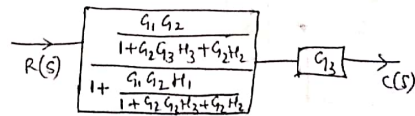 G1 G2
1+G2G3H3+G2H2
1+ G1 G2 H1
1+G2G2H3+G2H2
R(S)
G3
C(S)